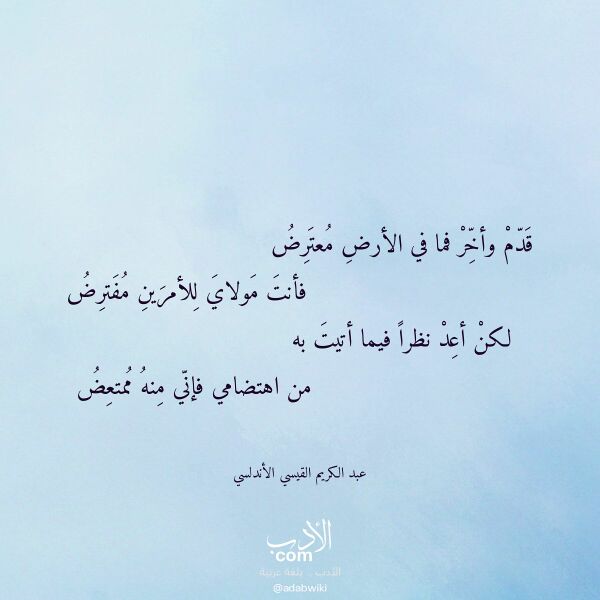 قَدّمْ وأخِّرْ فما في الأرضِ مُعتَرِضُ
فأنتَ مَولايَ لِلأمرَينِ مُفَترِضُ
لكنْ أعِدْ نظراً فيما أتيتَ به
من اهتضامي فإنّي مِنهُ مُمتعِضُ
عبد الكريم القيسي الأندلسي
الأدب
com
الأدب .. بلغة عربية
@adabwiki